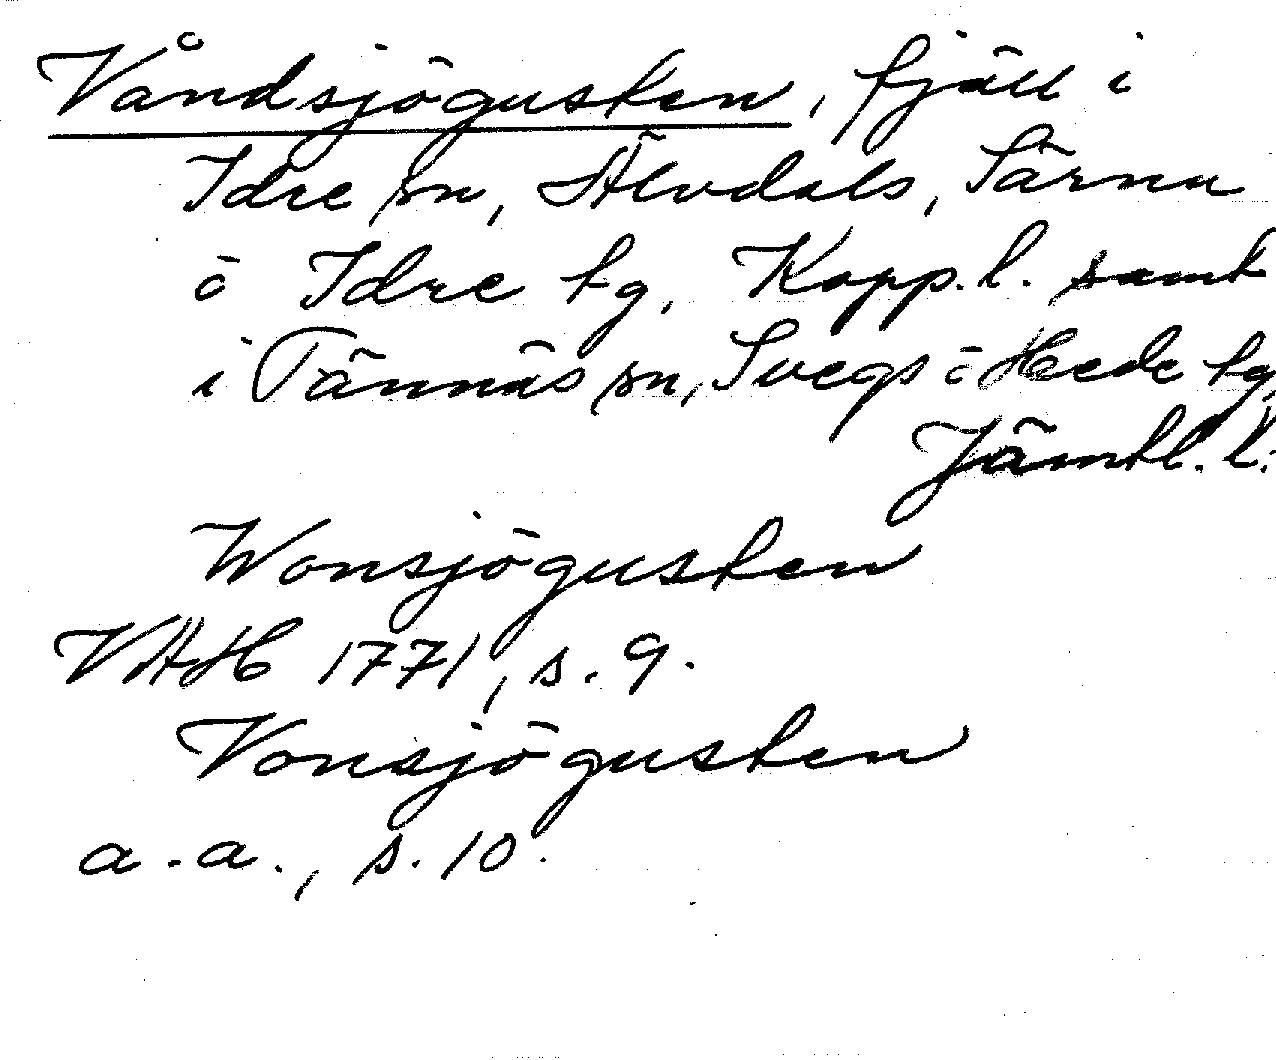 Våndsjögusten, fjäll i
Idre sn, Älvdals, Särna
ö Idre tg, Kopp.l. samt
i Tännäs sn, Svegs ö Hede tg,
Jämtl. l.
Wonsjögusten
VAH 1771, s. 9.
Vonsjögusten
a.a., s. 10.